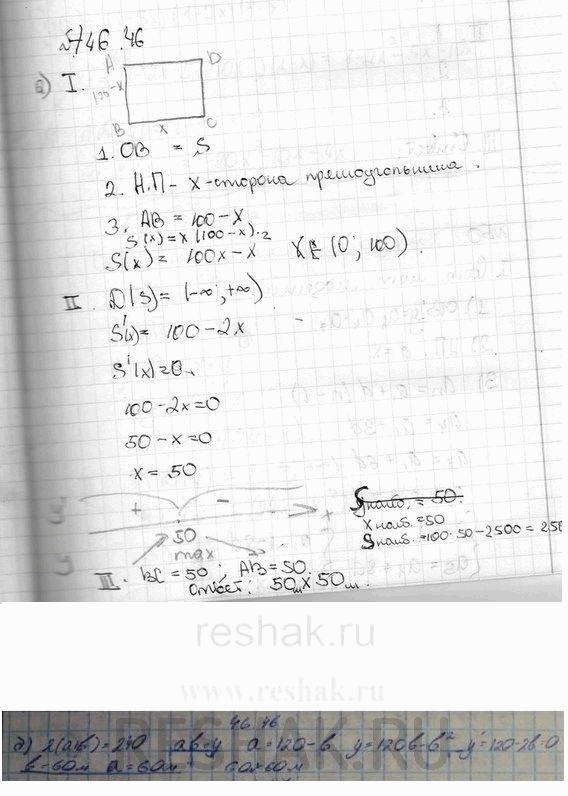 №46.46
а) I.
A D
100-x
B x C
1. ОВ = S
2. Н.П - x-сторона прямоугольника.
3. AB = 100-x
S(x)=x(100-x)
S(x) = 100x-x² x∈(0; 100).
II. D(S)=(-∞;+∞)
S'(x)= 100-2x
S'(x)=0
100-2x=0
50-x=0
x = 50
+ - x
50
max
Sнаиб. = 50
xнаиб. =50
Sнаиб. =100·50-2500 = 250
III. BC=50; AB=50.
Ответ: 50м x 50м.
reshak.ru
www.reshak.ru
RESHAK.RU
46.46
б) 2(a+b)=240 ab=y a=120-b y=120b-b² y'=120-2b=0
b=60м a=60м 60x60м